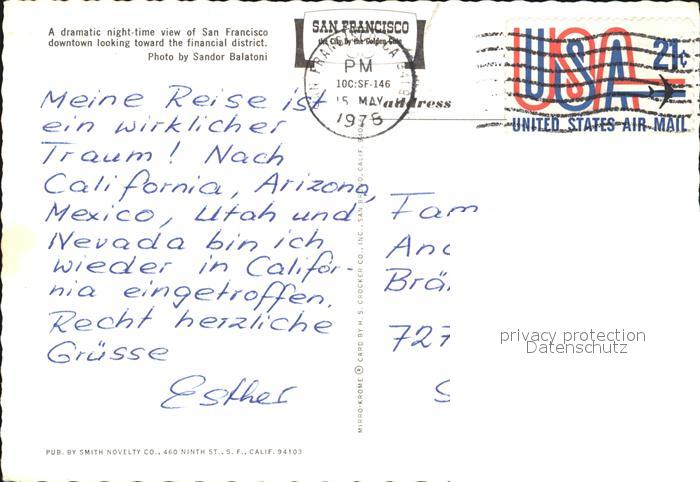 A dramatic night-time view of San Francisco
downtown looking toward the financial district.
Photo by Sandor Balatoni
SAN FRANCISCO
the City by the Golden Gate
SAN FRANCISCO CA
PM
10C:SF-146
15 MAY
1978
address
USA 21c
UNITED STATES AIR MAIL
Meine Reise ist
ein wirklicher
Traum! Nach
California, Arizona,
Mexico, Utah und
Nevada bin ich
wieder in Califor-
nia eingetroffen.
Recht herzliche
Grüsse
Esther
MIRRO-KROME ® CARD BY H. S. CROCKER CO., INC., SAN BRUNO, CALIF. 940
Fam
And
Brä
727
S
privacy protection
Datenschutz
PUB. BY SMITH NOVELTY CO., 460 NINTH ST., S. F., CALIF. 94103